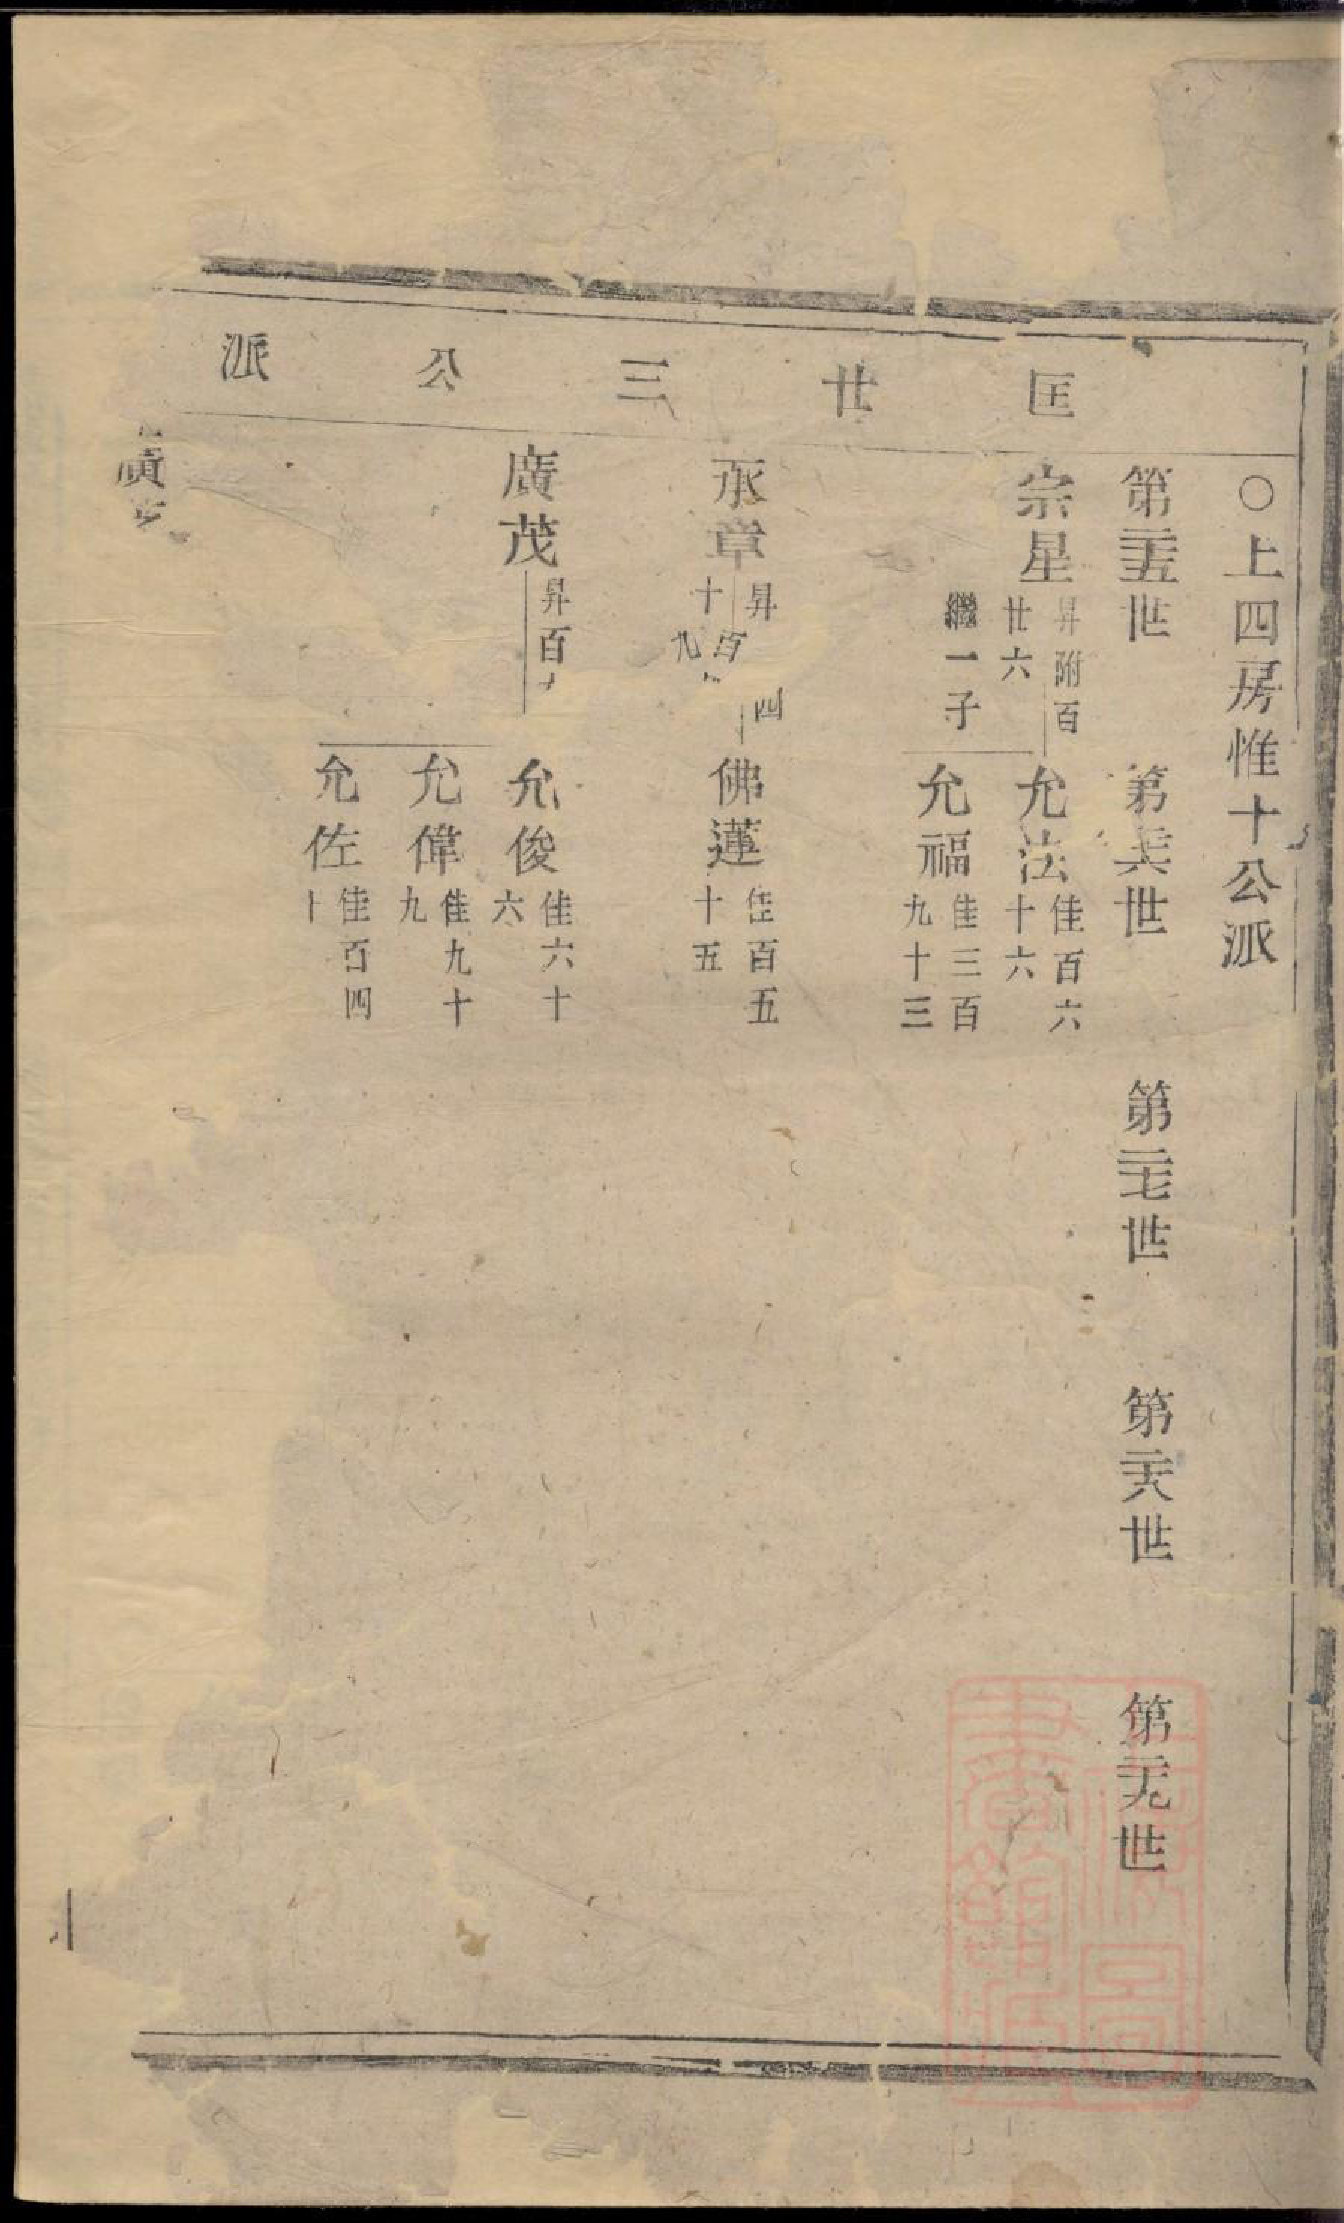 匡廿三公派
○上四房惟十公派
第二十五世
第二十六世
第二十七世
第二十八世
第二十九世
宗星
昇附百
廿六
繼一子
允法
佳百六
十六
允福
佳三百
九十三
承章
昇百四
十九
佛蓮
佳百五
十五
廣茂
昇百
允俊
佳六十
六
允偉
佳九十
九
允佐
佳百四
十
廣